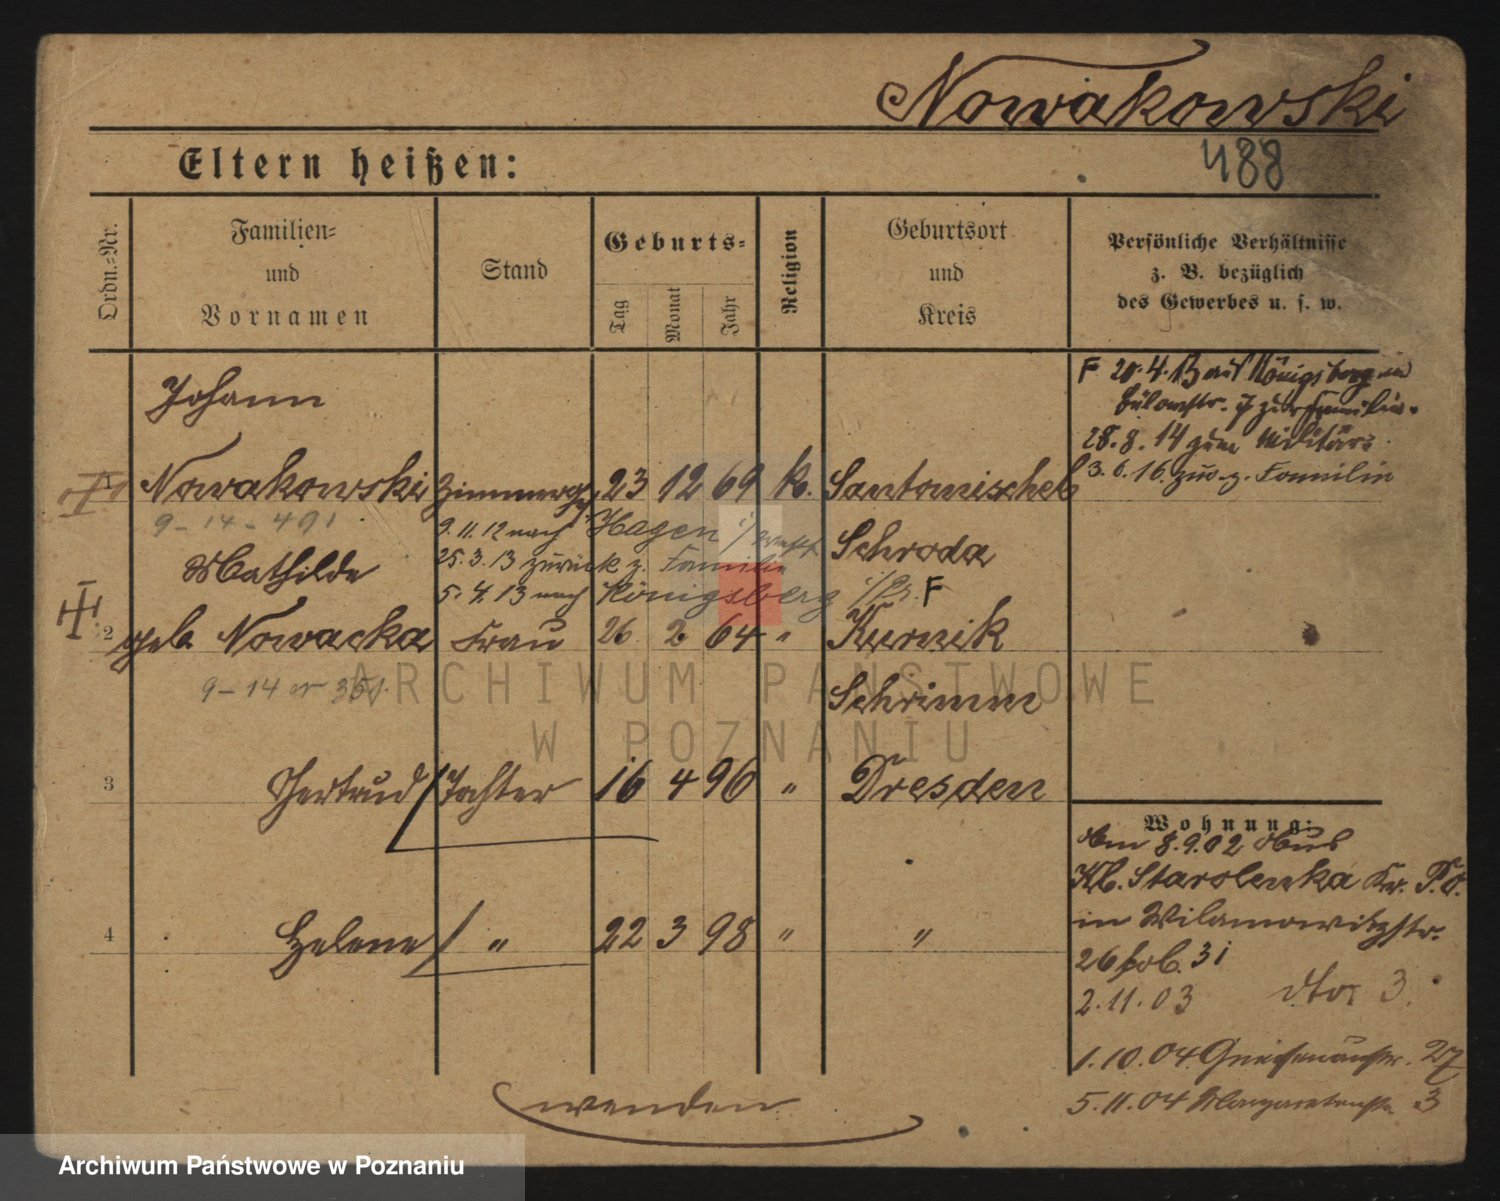 Nowakowski
488
Eltern heißen:
Ordn.-Nr.
Familien-
und
Vornamen
Stand
Geburts-
Tag
Monat
Jahr
Religion
Geburtsort
und
Kreis
Persönliche Verhältnisse
z. B. bezüglich
des Gewerbes u. s. w.
Johann
Nowakowski Zimmerges. 23 12 69 k. Santomischel
9-14-491
Schroda
9.11.12 nach Hagen i/Westf
25.3.13 zurück z. Familie
5.4.13 nach Königsberg i/Pr. F
F 20.4.13 aus Königsberg in
28.8.14 zum Militär
3.6.16 zur. z. Familie
Mathilde
2 geb. Nowacka Frau 26 2 64 " Kurnik
9-14 351
Schrimm
3 Gertrud Tochter 16 4 96 " Dresden
4 Helene " 22 3 98 " "
Wohnung:
Am 8.9.02 Aus
Kl. Starolenka Kr. P.O.
in Wilamowitzstr.
26
2.11.03 dto 3.
1.10.04 Gneisenaustr. 27
5.11.04 Margaretenstr 3
wenden
ARCHIWUM PAŃSTWOWE
W POZNANIU
Archiwum Państwowe w Poznaniu